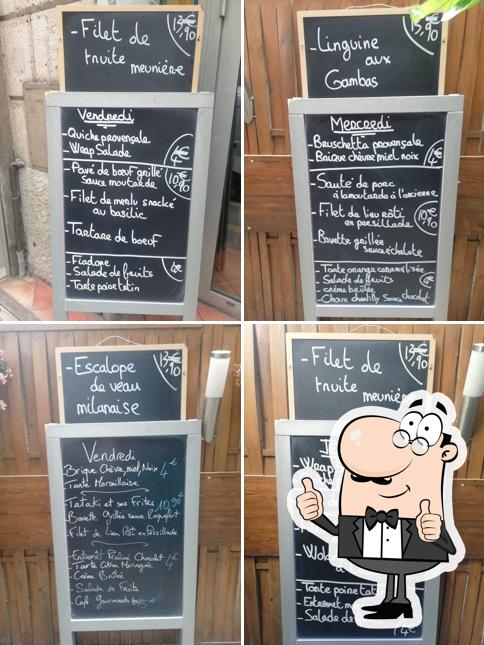 - Filet de
truite
meunière
Vendredi
- Quiche provençale
- Wrap Salade
4€
- Pavé de bœuf grillé
sauce moutarde
10,90
- Filet de merlu snacké
au basilic
- Tartare de bœuf
- Fiadone
- Salade de fruits
- Tarte poire tatin
4€
- Linguine
aux
Gambas
Mercredi
- Bruschetta provençale
- Brique chèvre miel noix
4€
- Sauté de porc
à la moutarde à l'ancienne
- Filet de lieu rôti
en persillade
10€90
- Bavette grillée
sauce échalote
- Tarte orange caramélisée
- Salade de fruits
- Crème brûlée
- Choux chantilly sauce chocolat
- Escalope
de veau
milanaise
Vendredi
Brique Chèvre, Miel, Noix
Tarte Marseillaise
4€
- Tataki et ses Frites
10,90€
- Bavette Grillée sauce Roquefort
- Filet de Lieu Rôti en Persillade
- Entremet Praliné Chocolat
- Tarte Citron Meringuée
- Crème Brûlée
4€
- Salade de Fruits
- Café gourmand
- Filet de
truite
meunière
- Wrap
- Tarte poire
- Entremet
- Salade de
4€